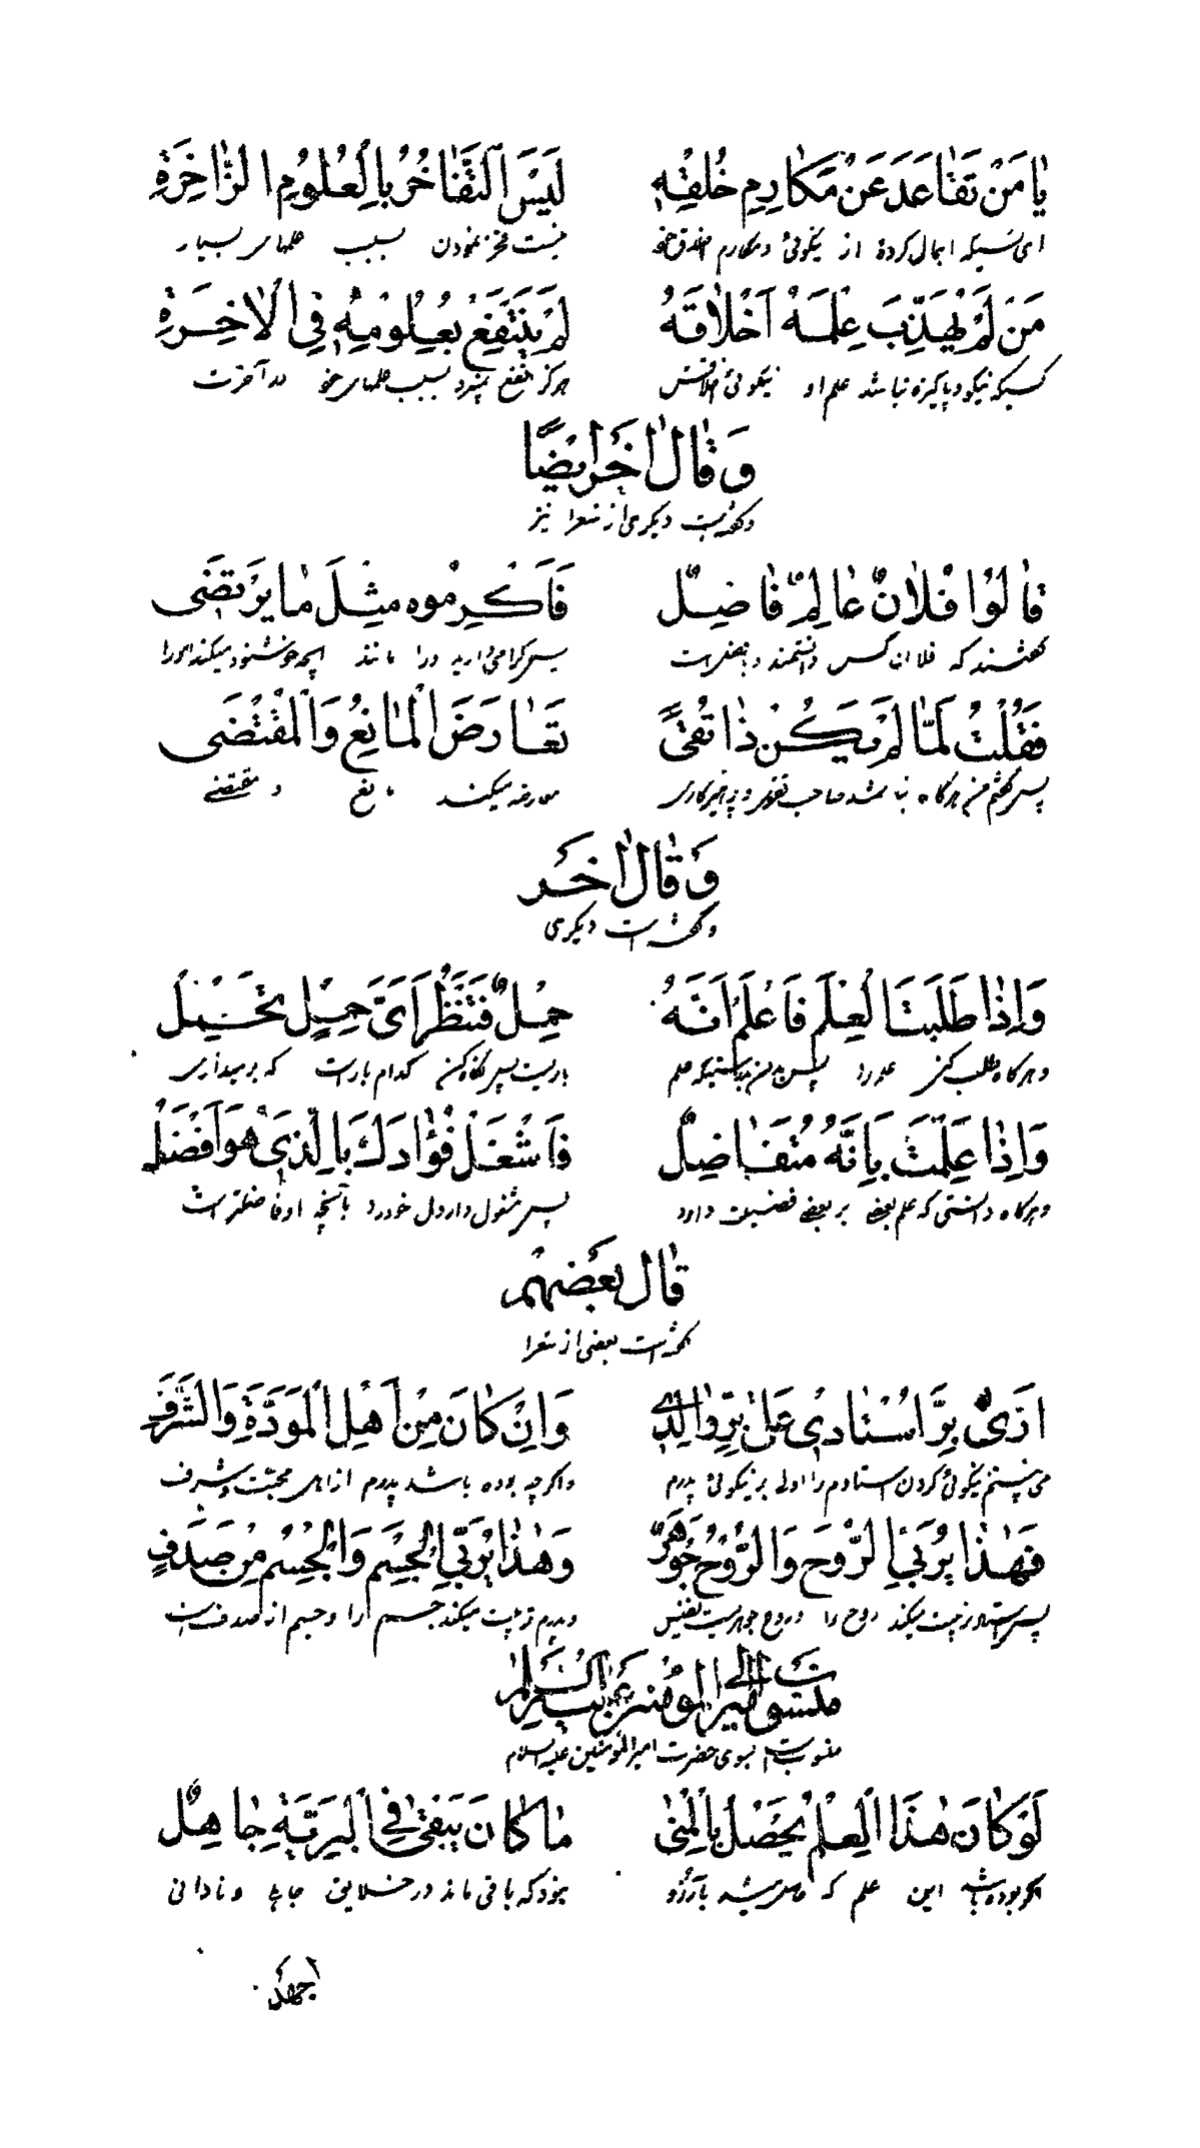 يٰا مَنْ تَقٰاعَدَ عَنْ مَكٰارِمِ خُلْقِهِ لَيْسَ التَّفٰاخُرُ بِالْعُلُومِ الزّٰاخِرَةِ
ای کسیکه اهمال کردهٔ از نیکوئی و مکارم اخلاق خود نیست فخر نمودن بسبب علمهای بسیار
مَنْ لَمْ يُهَذِّبْ عِلْمُهُ اَخْلاٰقَهُ لَمْ يَنْتَفِعْ بِعُلُومِهِ فِي الْاٰخِرَةِ
کسیکه نیکو و پاکیزه نباشد علم او نیکوئی اخلاقش هرکز نفع نبرد بسبب علمهای خود در آخرت
وَ قٰالَ اٰخَرُ اَيْضًا
و کفته است دیکری از شعرا نیز
قٰالُوا فُلاٰنٌ عٰالِمٌ فٰاضِلٌ فَاَكْرِمُوهُ مِثْلَ مٰا يَرْتَضَى
کفتند که فلان کس دانشمند و بافضلست پس کرامی دارید او را مانند آنچه خوشنود میکند او را
فَقُلْتُ لَمّٰا لَمْ يَكُنْ ذٰا تُقًى تَعٰارَضَ الْمٰانِعُ وَالْمُقْتَضَى
پس کفتم من هرکاه نباشد صاحب تقوی و پرهیزکاری معارضه میکند مانع و مقتضی
وَ قٰالَ اٰخَرُ
و کفته است دیکری
وَاِذٰا طَلَبْتَ الْعِلْمَ فَاعْلَمْ اَنَّهُ حِمْلٌ فَتَنَظَّرْ اَىَّ حِمْلٍ تَحْمِلُ
و هرکاه طلب کنی علم را پس بدان بدرستیکه علم باریست پس نکاه کن کدام بار است که برمیداری
وَاِذٰا عَلِمْتَ بِاَنَّهُ مُتَفٰاضِلٌ فَاشْغَلْ فُؤٰادَكَ بِالَّذِى هُوَ اَفْضَلُ
و هرکاه دانستی که علم بعضی بر بعضی فضیلت دارد پس مشغول دار دل خود را بآنچه او فاضلتر است
قٰالَ بَعْضُهُمْ
کفته است بعضی از شعرا
اَرٰى بِرَّ اُسْتٰادِى عَلىٰ بِرِّ وٰالِدِى وَاِنْ كٰانَ مِنْ اَهْلِ الْمَوَدَّةِ وَالشَّرَفِ
می بینم نیکوئی کردن استادم را اولی بر نیکوئی پدرم و اکرچه بوده باشد پدرم از اهل محبت و شرف
فَهٰذٰا يُرَبِّى الرُّوحَ وَالرُّوحُ جَوْهَرٌ وَهٰذٰا يُرَبِّى الْجِسْمَ وَالْجِسْمُ مِنْ صَدَفٍ
پس استاد تربیت میکند روح را و روح جوهریست نفیس و پدرم تربیت میکند جسم را و جسم از صدف است
مَنْسُوبٌ اِلىٰ اَمِيرِ الْمُؤْمِنِينَ عَلَيْهِ السَّلاٰمُ
منسوبست بسوی حضرت امیرالمؤمنین علیه السلام
لَوْ كٰانَ هٰذَا الْعِلْمُ يَحْصُلُ بِالْمُنىٰ مٰا كٰانَ يَبْقىٰ فِي الْبَرِيَّةِ جٰاهِلٌ
اکر بوده باشد این علم که حاصل میشد بآرزو نبود که باقی ماند در خلایق جاهل و نادانی
اجهد